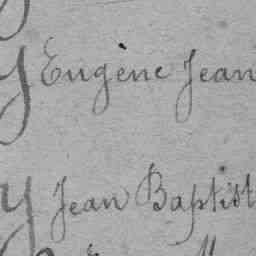 y Eugène Jean
y Jean Baptist